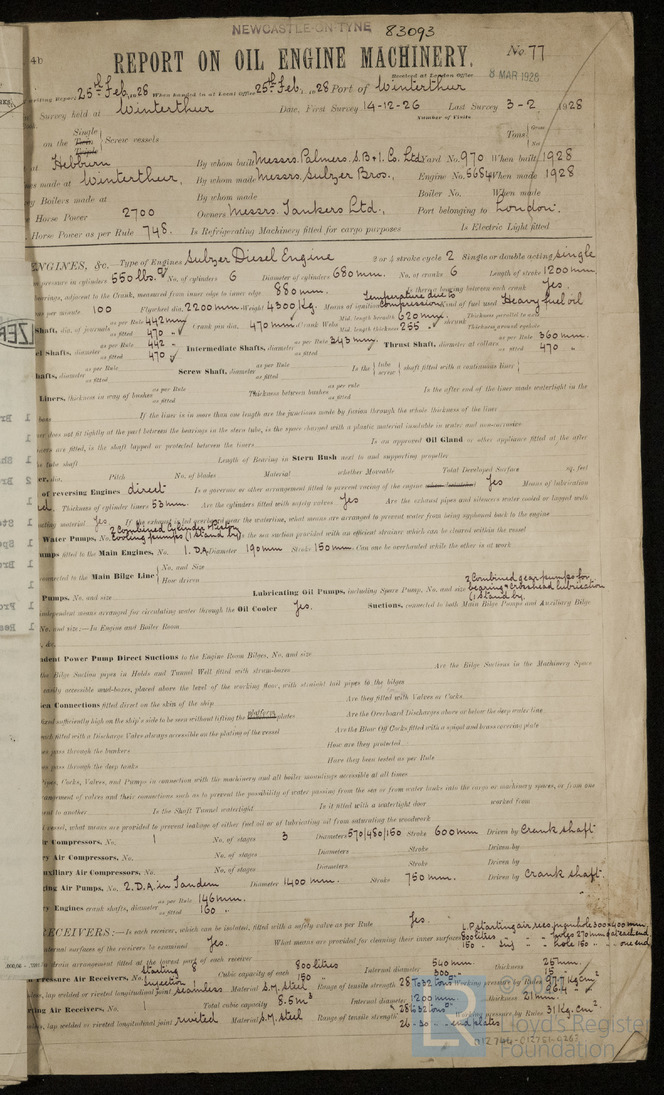 NEWCASTLE-ON-TYNE 83093
4b REPORT ON OIL ENGINE MACHINERY. No. 77
Received at London Office 8 MAR 1928
writing Report 25th Feb. 1928 When handed in at Local Office 25th Feb. 1928 Port of Winterthur
Survey held at Winterthur Date, First Survey 14-12-26 Last Survey 3-2 1928
Number of Visits
on the Single Twin Triple Screw vessels Tons Gross Net
at Hebburn By whom built Messrs. Palmers S.B. & I. Co. Ltd Yard No. 970 When built 1928
s made at Winterthur, By whom made Messrs. Sulzer Bros., Engine No. 5684 When made 1928
y Boilers made at By whom made Boiler No. When made
Horse Power 2700 Owners Messrs. Tankers Ltd., Port belonging to London.
Horse Power as per Rule 748. Is Refrigerating Machinery fitted for cargo purposes Is Electric Light fitted
ENGINES, &c. Type of Engines Sulzer Diesel Engine 2 or 4 stroke cycle 2 Single or double acting single
pressure in cylinders 550 lbs. No. of cylinders 6 Diameter of cylinders 680 mm. No. of cranks 6 Length of stroke 1200 mm
bearings, adjacent to the Crank, measured from inner edge to inner edge 880 mm. Is there a bearing between each crank Yes.
per minute 100 Flywheel dia. 2200 mm. Weight 4300 Kg. Means of ignition Temperature due to compression Kind of fuel used Heavy fuel oil
Shaft, dia. of journals as per Rule 442 mm as fitted 470 Crank pin dia. 470 mm. Crank Webs Mid. length breadth 620 mm. Mid. length thickness 255 shrunk Thickness parallel to axis Thickness around eyehole
Shafts, diameter as per Rule 442 as fitted 470 Intermediate Shafts, diameter as per Rule 343 mm. as fitted Thrust Shaft, diameter at collars as per Rule 360 mm. as fitted 470
Shafts, diameter as per Rule as fitted Screw Shaft, diameter as per Rule as fitted Is the tube screw shaft fitted with a continuous liner
Liners, thickness in way of bushes as per Rule as fitted Thickness between bushes as per rule as fitted Is the after end of the liner made watertight in the
boss If the liner is in more than one length are the junctions made by fusion through the whole thickness of the liner
er does not fit tightly at the part between the bearings in the stern tube, is the space charged with a plastic material insoluble in water and non-corrosive
ners are fitted, is the shaft lapped or protected between the liners Is an approved Oil Gland or other appliance fitted at the after
tube shaft Length of Bearing in Stern Bush next to and supporting propeller
er, dia. Pitch No. of blades Material whether Moveable Total Developed Surface sq. feet
of reversing Engines direct Is a governor or other arrangement fitted to prevent racing of the engine Yes Means of lubrication
Thickness of cylinder liners 53 mm. Are the cylinders fitted with safety valves Yes Are the exhaust pipes and silencers water cooled or lagged with
ting material Yes If the exhaust is led overboard near the waterline, what means are arranged to prevent water being syphoned back to the engine
Water Pumps, No. 2 Combined Cylinder & Piston cooling pumps (1 stand by) the sea suction provided with an efficient strainer which can be cleared within the vessel
umps fitted to the Main Engines, No. 1. D.A. Diameter 190 mm Stroke 150 mm. Can one be overhauled while the other is at work
connected to the Main Bilge Line No. and Size How driven
Pumps. No. and size Lubricating Oil Pumps, including Spare Pump, No. and size 2 Combined gear pumps for bearing & Crosshead lubrication (1 stand by
independent means arranged for circulating water through the Oil Cooler Yes. Suctions, connected to both Main Bilge Pumps and Auxiliary Bilge
No. and size:—In Engine and Boiler Room
&c.
dent Power Pump Direct Suctions to the Engine Room Bilges, No. and size
the Bilge Suction pipes in Holds and Tunnel Well fitted with strum-boxes Are the Bilge Suctions in the Machinery Space
easily accessible mud-boxes, placed above the level of the working floor, with straight tail pipes to the bilges
Sea Connections fitted direct on the skin of the ship Are they fitted with Valves or Cocks
fixed sufficiently high on the ship's side to be seen without lifting the platform plates Are the Overboard Discharges above or below the deep water line
each fitted with a Discharge Valve always accessible on the plating of the vessel Are the Blow Off Cocks fitted with a spigot and brass covering plate
es pass through the bunkers How are they protected
es pass through the deep tanks Have they been tested as per Rule
Pipes, Cocks, Valves, and Pumps in connection with the machinery and all boiler mountings accessible at all times
rangement of valves and their connections such as to prevent the possibility of water passing from the sea or from water tanks into the cargo or machinery spaces, or from one
ent to another Is the Shaft Tunnel watertight Is it fitted with a watertight door worked from
vessel, what means are provided to prevent leakage of either fuel oil or of lubricating oil from saturating the woodwork
Air Compressors, No. 1 No. of stages 3 Diameters 570/480/150 Stroke 600 mm Driven by Crank shaft
ry Air Compressors, No. No. of stages Diameters Stroke Driven by
uxiliary Air Compressors, No. No. of stages Diameters Stroke Driven by
ging Air Pumps, No. 2. D.A. in Tandem Diameter 1400 mm. Stroke 750 mm. Driven by Crank shaft.
ry Engines crank shafts, diameter as per Rule 146 mm. as fitted 160
RECEIVERS:—Is each receiver, which can be isolated, fitted with a safety valve as per Rule Yes.
nternal surfaces of the receivers be examined Yes. What means are provided for cleaning their inner surfaces
drain arrangement fitted at the lowest part of each receiver
Pressure Air Receivers, No. Starting 8 Injection 1 Cubic capacity of each 800 litres 150 Internal diameter 540 mm. 300 thickness 25 mm. 15
lap welded or riveted longitudinal joint seamless Material S.M. Steel Range of tensile strength 28 to 32 tons Working pressure by Rules 97.7 kg cm² 96.4
ting Air Receivers, No. Total cubic capacity 8.5 m³ Internal diameter 1200 mm. thickness 21 mm.
lap welded or riveted longitudinal joint riveted Material S.M. Steel Range of tensile strength 28 to 32 tons 26 - 30 end plates Working pressure by Rules 31 Kg. cm².
Lloyd's Register
Foundation